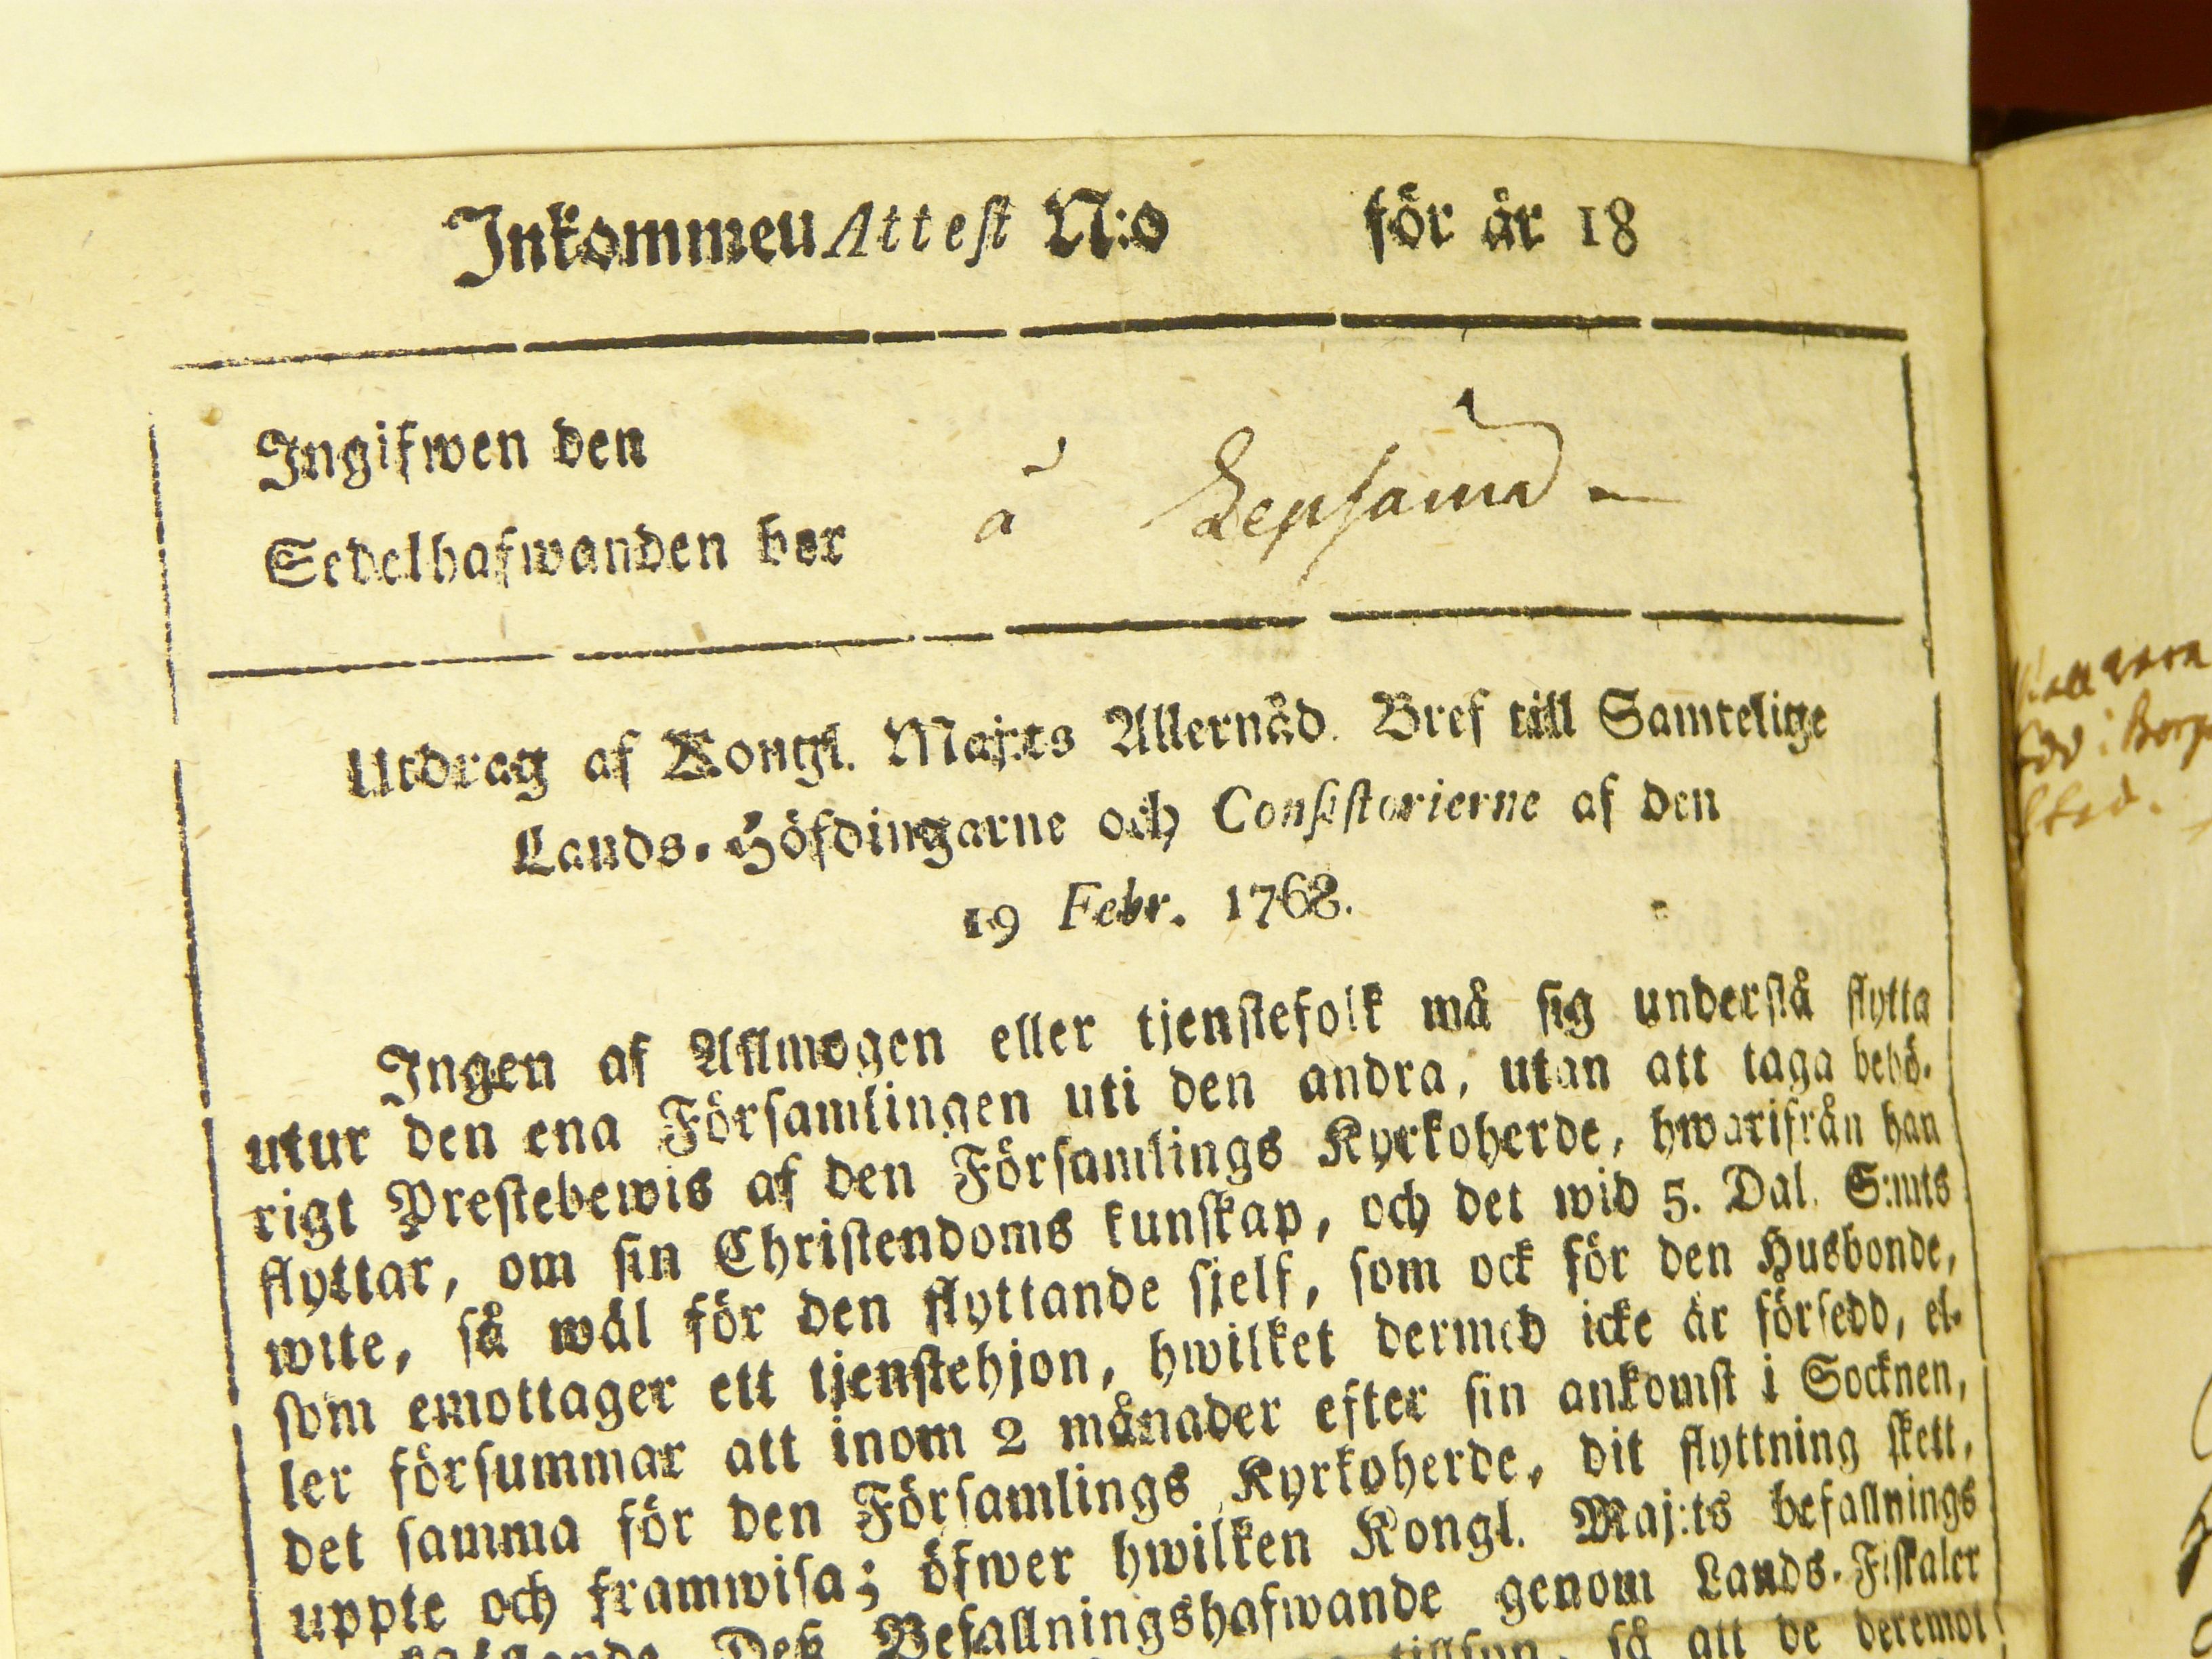 Inkommeu Attest N:o för år 18
Ingifwen den
Sedelhafwanden bor å Repsund -
Utdrag af Kongl. Maj:ts Allernåd. Bref till Samtelige
Lands-Höfdingarne och Consistorierne af den
19 Febr. 1768.
Ingen af Allmogen eller tjenstefolk må sig understå flytta
utur den ena Församlingen uti den andra, utan att taga behö-
rigt Prestebewis af den Församlings Kyrkoherde, hwarifrån han
flyttar, om sin Christendoms kunskap, och det wid 5. Dal. S:mts
wite, så wäl för den flyttande sjelf, som ock för den Husbonde,
som emottager ett tjenstehjon, hwilket dermed icke är försedd, el-
ler försummar att inom 2 månader efter sin ankomst i Socknen,
det samma för den Församlings Kyrkoherde, dit flyttning skett,
uppte och framwisa; öfwer hwilken Kongl. Maj:ts befallnings
Deß Befallningshafwande genom Lands-Fiskaler
tillsyn, så att de deremot